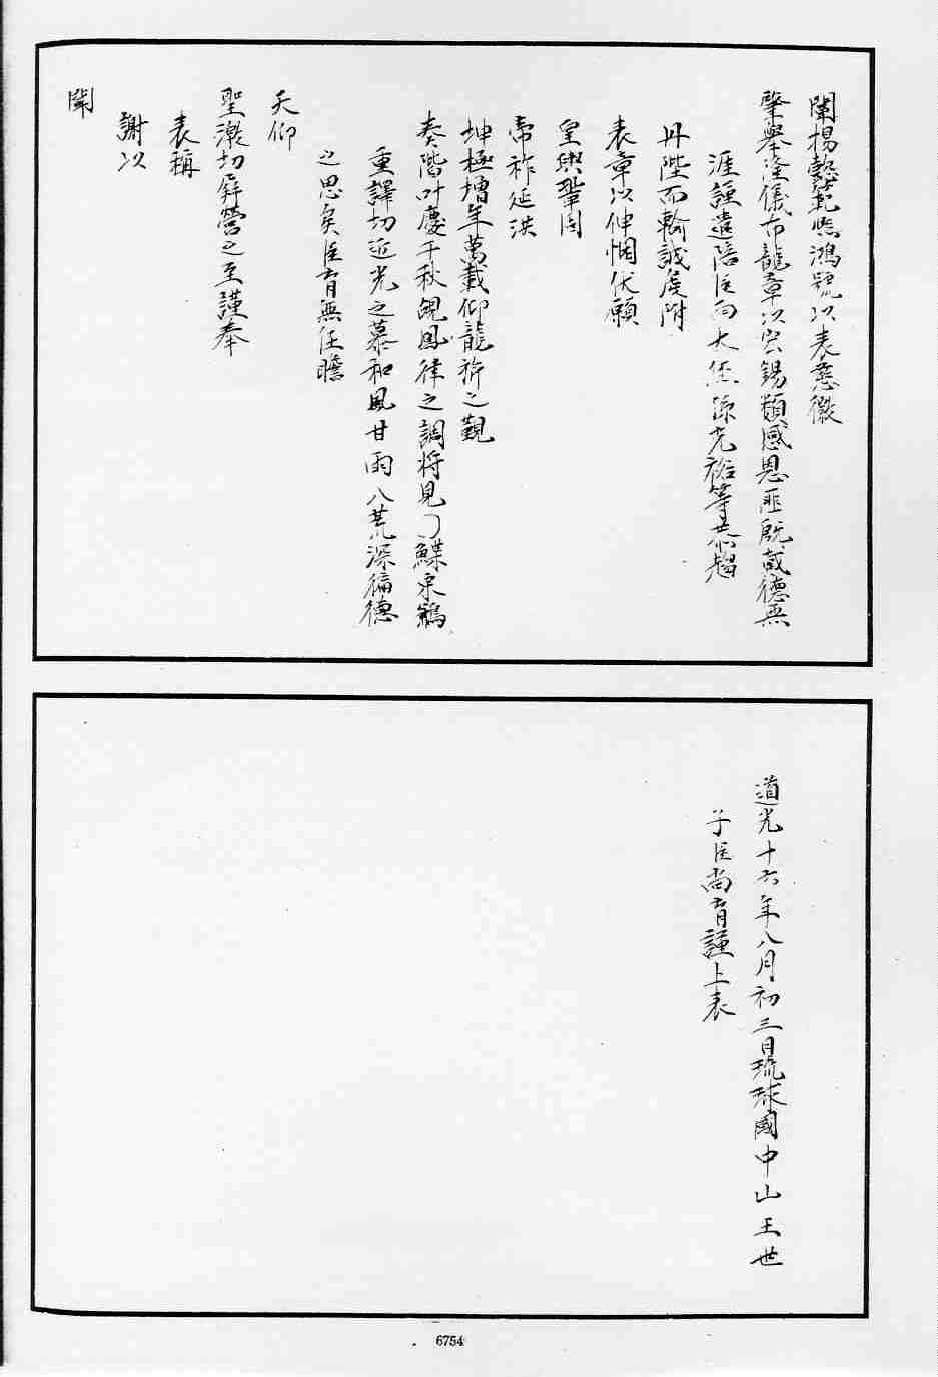 闡揚懿範崇鴻號以表慈徽
肇舉隆儀布龍章以宏錫類感恩匪既戴德無
涯謹遣陪臣向大烋孫光裕等恭趨
丹陛而輸誠虔附
表章以伸悃伏願
皇輿鞏固
帝祚延洪
坤極增年萬載仰龍旂之觀
奏階叶慶千秋覩鳳律之調將見鰈泉鶼
重譯切近光之慕和風甘雨八荒深徧德
之思矣臣育無任瞻
天仰
聖激切屏營之至謹奉
表稱
謝以
聞
道光十六年八月初三日琉球國中山王世
子臣尚育謹上表
6754